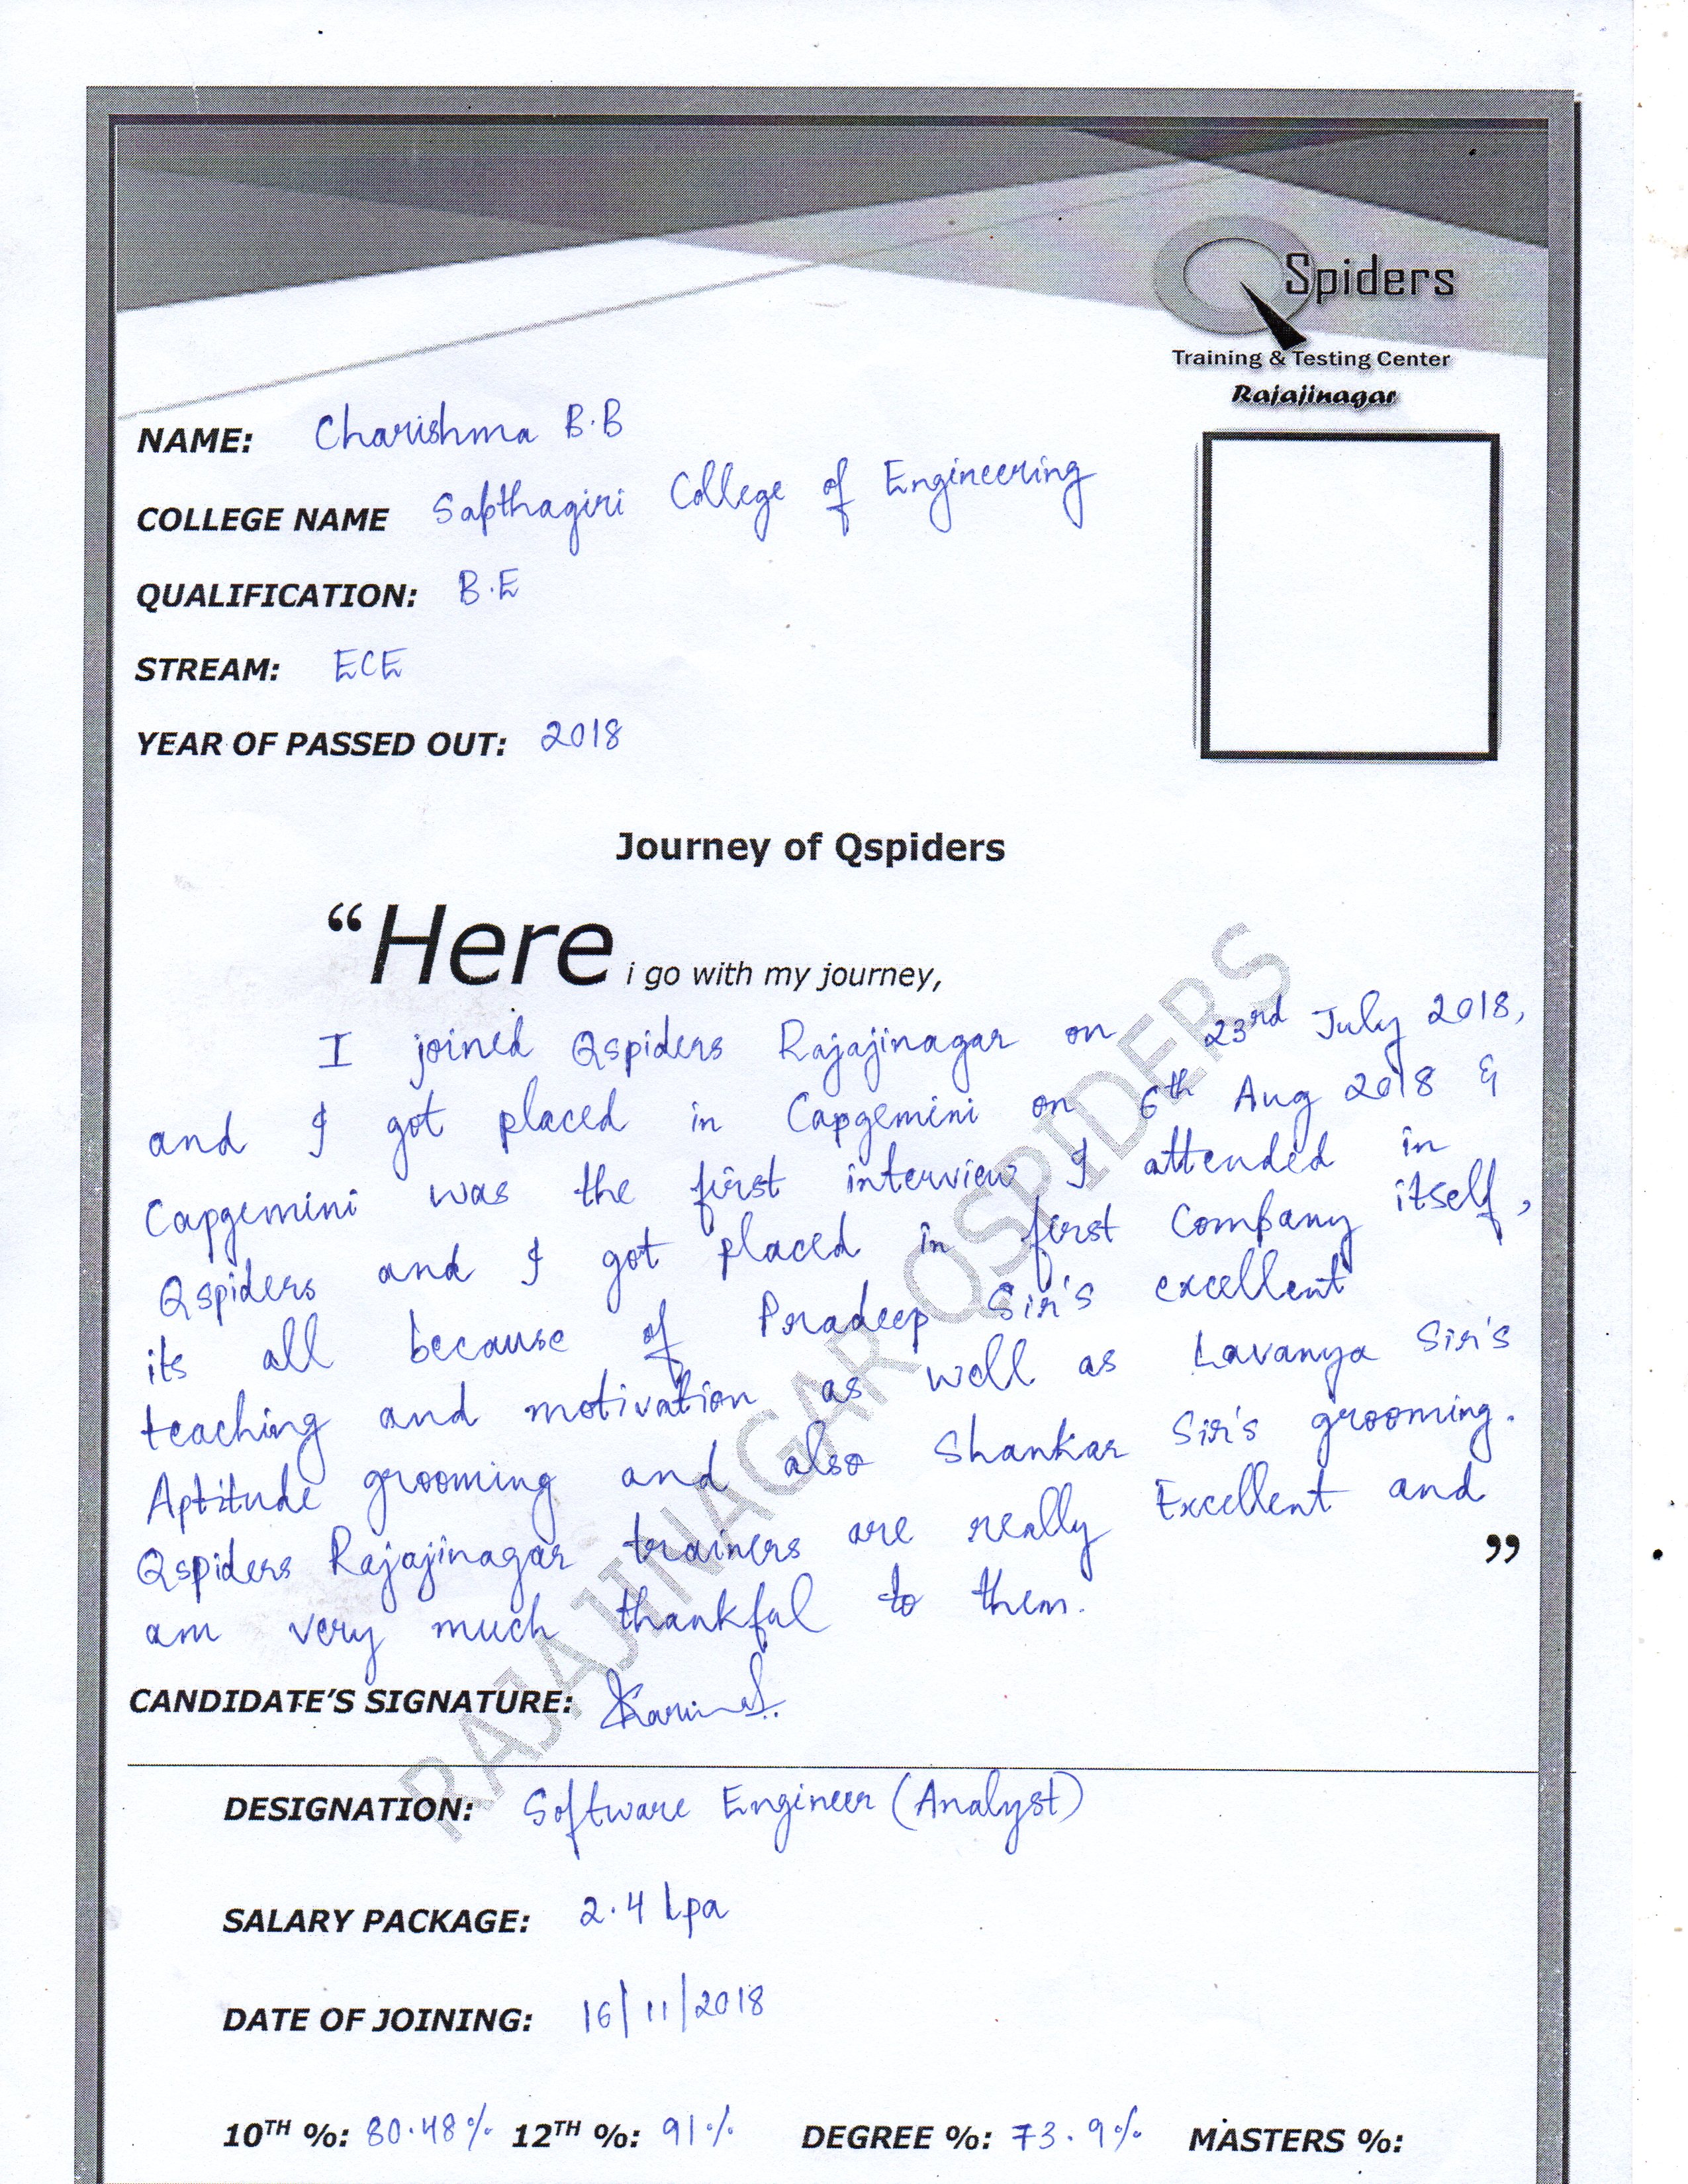 QSpiders
Training & Testing Center
Rajajinagar
NAME: Charishma B.B
COLLEGE NAME Sapthagiri College of Engineering
QUALIFICATION: B.E
STREAM: ECE
YEAR OF PASSED OUT: 2018
Journey of Qspiders
“Here i go with my journey,
I joined Qspiders Rajajinagar on 23rd July 2018,
and I got placed in Capgemini on 6th Aug 2018 &
Capgemini was the first interview I attended in
Qspiders and I got placed in first Company itself,
its all because of Pradeep Sir's excellent
teaching and motivation as well as Lavanya Sir's
Aptitude grooming and also Shankar Sir's grooming.
Qspiders Rajajinagar trainers are really Excellent and
am very much thankful to them.
”
CANDIDATE’S SIGNATURE:
RAJAJINAGAR QSPIDERS
DESIGNATION: Software Engineer (Analyst)
SALARY PACKAGE: 2.4 Lpa
DATE OF JOINING: 16/11/2018
10TH %: 80.48% 12TH %: 91% DEGREE %: 73.9% MASTERS %: